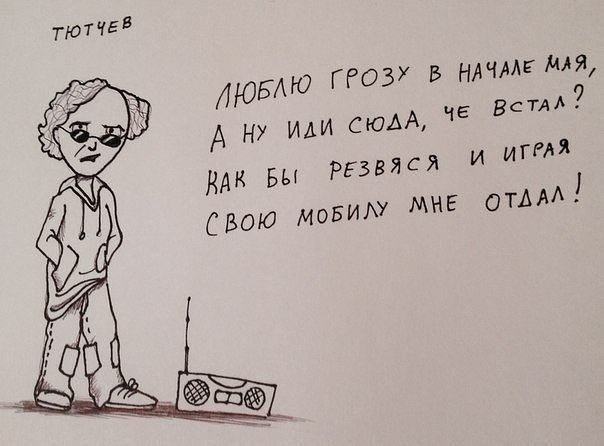 ТЮТЧЕВ
ЛЮБЛЮ ГРОЗУ В НАЧАЛЕ МАЯ,
А НУ ИДИ СЮДА, ЧЕ ВСТАЛ?
КАК БЫ РЕЗВЯСЯ И ИГРАЯ
СВОЮ МОБИЛУ МНЕ ОТДАЛ!